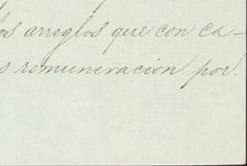 os arreglos que con ca-
s remuneracion por